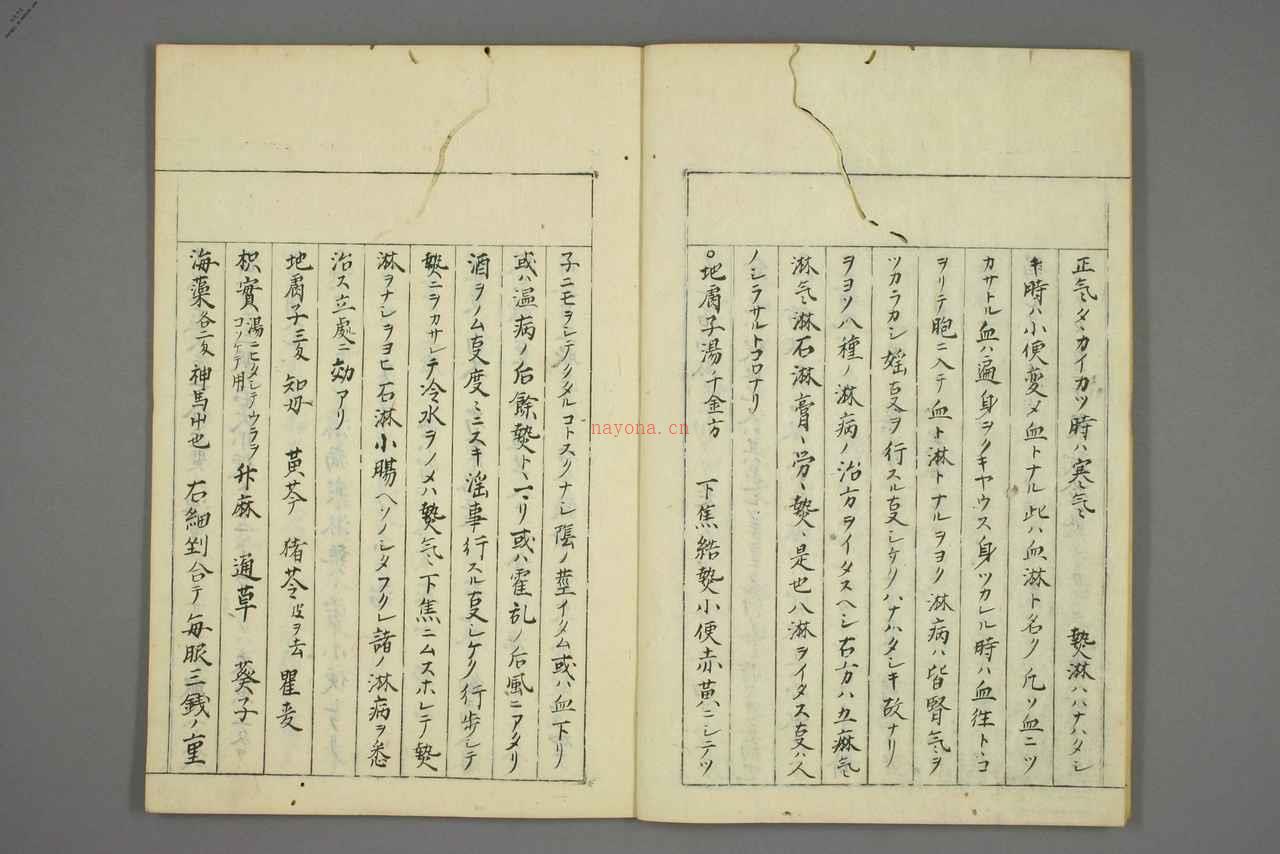 正気タヽカイカツ時ハ寒気ヽ 𤍠淋ハハナハタシ
キ時ハ小便変メ血トナル此ハ血淋ト名ク凡ソ血ニツ
カサトル血ハ遍身ヲクキヤウス身ツカレル時ハ血往トヽコ
ヲリテ胞ニ入テ血ト淋トナルヲヨク淋病ハ皆腎気ヲ
ツカラカシ婬㕝ヲ行スル㕝シケクハナハタシキ故ナリ
ヲヨソ八種ノ淋病ノ治方ヲイタスヘシ右方ハ五麻気
淋気淋石淋膏ヽ労ヽ𤍠ヽ是也八淋ヲイタス㕝ハ人
ノシラサルトコロナリ
○地膚子湯ノ千金方 下焦結𤍠小便赤黄ニシテツ
子ニモヲシテクタルコトスクナシ陰ノ莖イタム或ハ血下リ
或ハ温病ノ后餘𤍠ト 或ハ霍乱ノ后風ニアタリ
酒ヲノム㕝度ミニスキ淫事行スル㕝シケク行歩シテ
𤍠ニヲカサレテ冷水ヲノメハ𤍠気ヽ下焦ニムスホレテ𤍠
淋ヲナシヲヨヒ石淋小腸ヘソノシタフクレ諸ノ淋病ヲ悉
治ス立處ニ効アリ
地膚子三匁 知母 黄芩 猪苓皮ヲ去 瞿麦
枳實湯ニヒタシテウララコソケテ用 升麻 通草 葵子
海藻各二匁神馬中也 右細剉合テ毎服三銭ノ重
nayona.cn